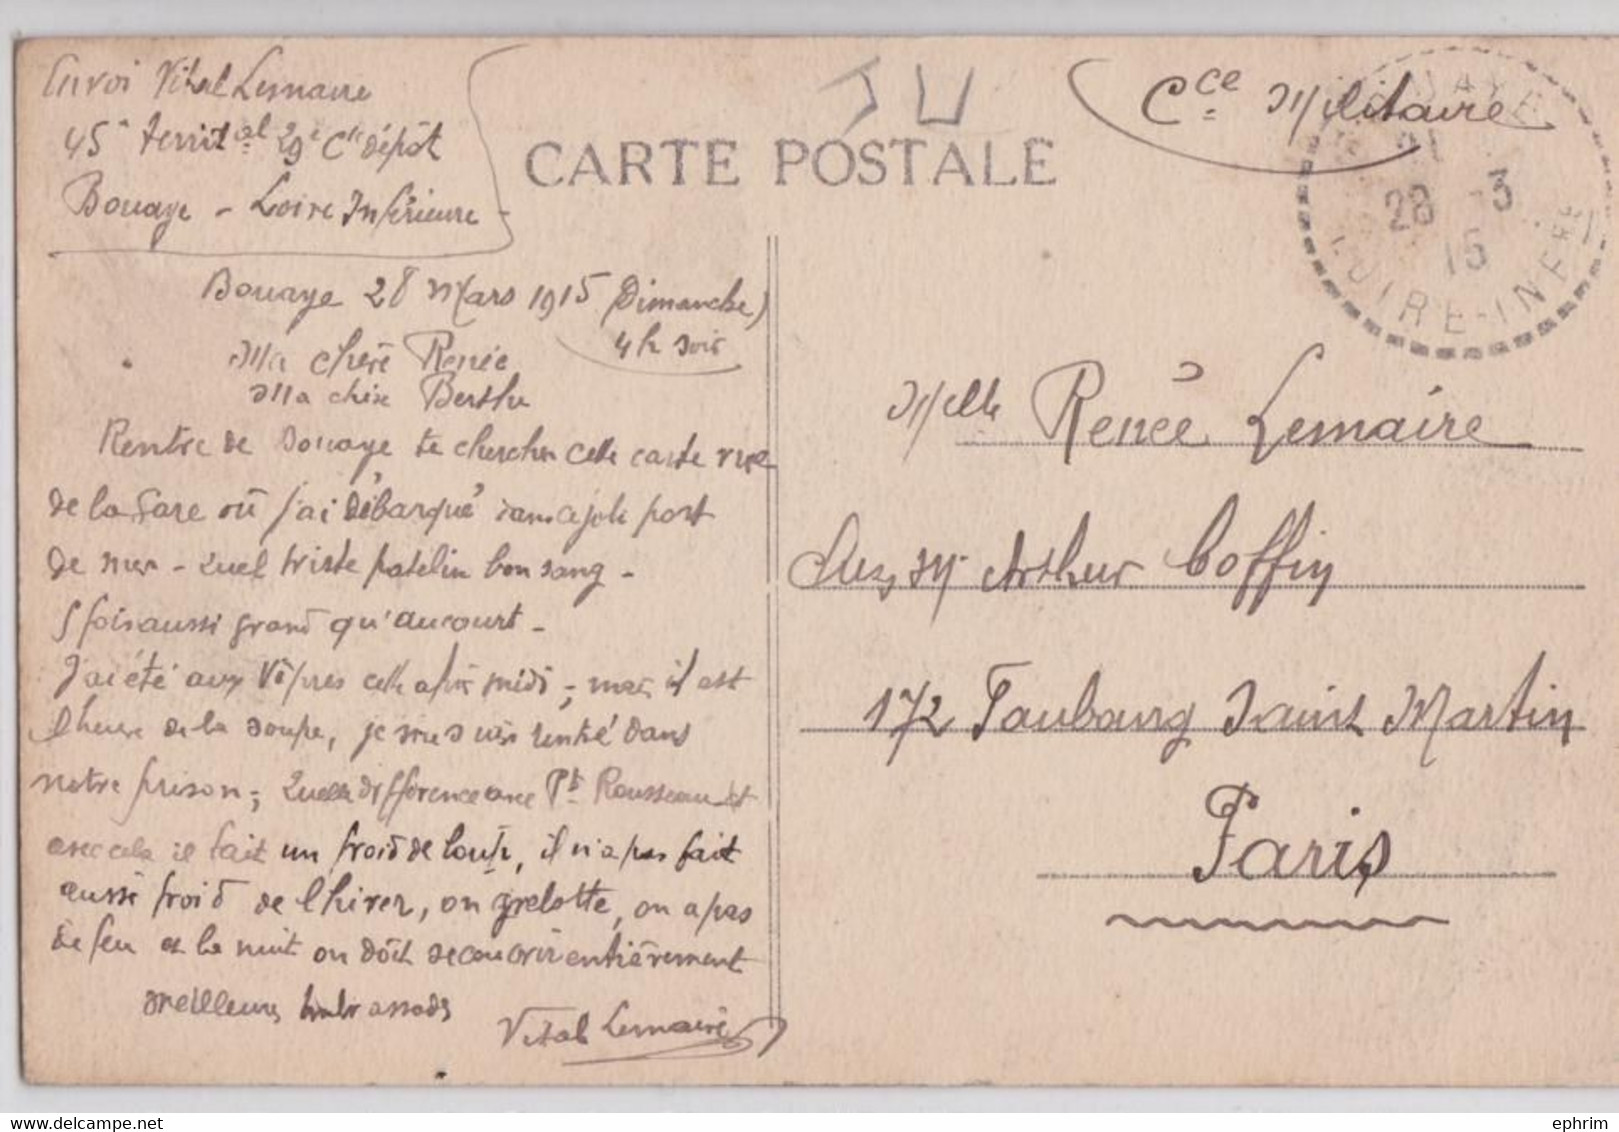 Envoi Vital Lemaire
45e Territal 29e Cie dépôt
Bouaye - Loire Inférieure -
CARTE POSTALE
Cce Militaire
BOUAYE
28 - 3
15
LOIRE-INFRE
Bouaye 28 Mars 1915 (Dimanche)
4h soir
Ma chère Renée
Ma chère Berthe
Rentre de Bouaye te chercher cette carte vue
de la Gare où j'ai débarqué dans ce joli port
de mer - Quel triste patelin bon sang -
5 fois aussi grand qu'Aucourt -
J'ai été aux Vêpres cette après midi ; mais il est
l'heure de la soupe, je me suis rentré dans
notre prison ; Quelle différence avec Pt Rousseau et
avec cela il fait un froid de loup, il n'a pas fait
aussi froid de l'hiver, on grelotte, on a pas
de feu et la nuit on doit se couvrir entièrement
Meilleures embrassades
Vital Lemaire
Melle Renée Lemaire
Chez M. Arthur Coffin
172 Faubourg Saint Martin
Paris
delcampe.net
ephrim